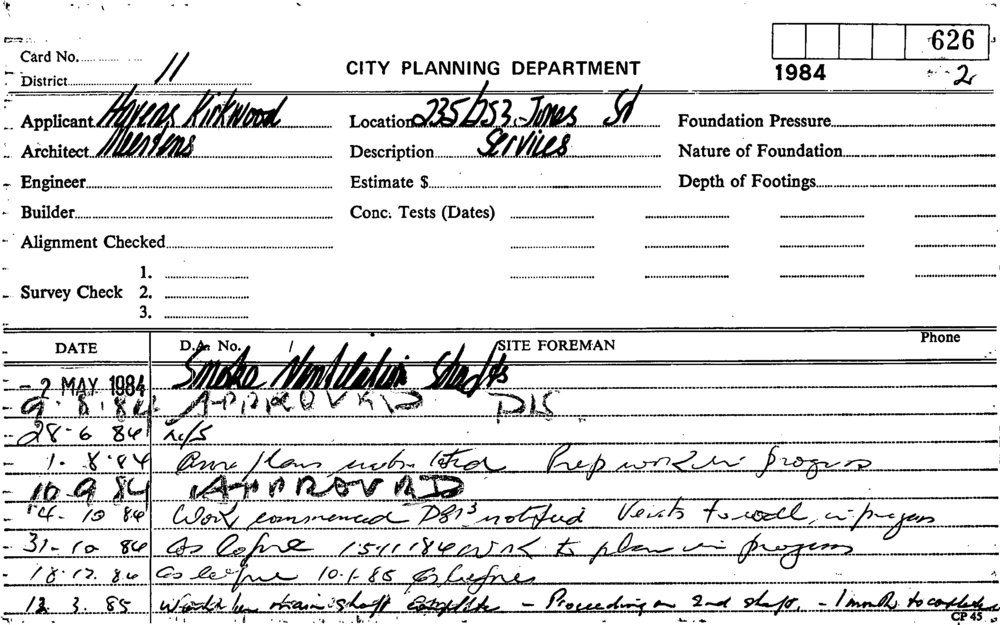 626
Card No.
District 11
CITY PLANNING DEPARTMENT
1984
2
Applicant Kirkwood
Location 235/253 Jones St
Foundation Pressure
Architect
Description Services
Nature of Foundation
Engineer
Estimate $
Depth of Footings
Builder
Conc. Tests (Dates)
Alignment Checked
1.
Survey Check 2.
3.
DATE
D.A. No. / SITE FOREMAN
Phone
- 2 MAY 1984 Smoke Ventilation Shafts
9.8.84 APPROVED
28-6 84 n/s
1.8.84 plans submitted Prep work in progress
10.9 84 APPROVED
4-10 84 Work commenced notified Vents to wall, in progress
31-10 84 As before 15-11-84 work to plan in progress
18.12.84 as before 10-1-85 as before
12 3. 85 shaft - Proceeding on 2nd shaft. - 1 month to complete
CP 45